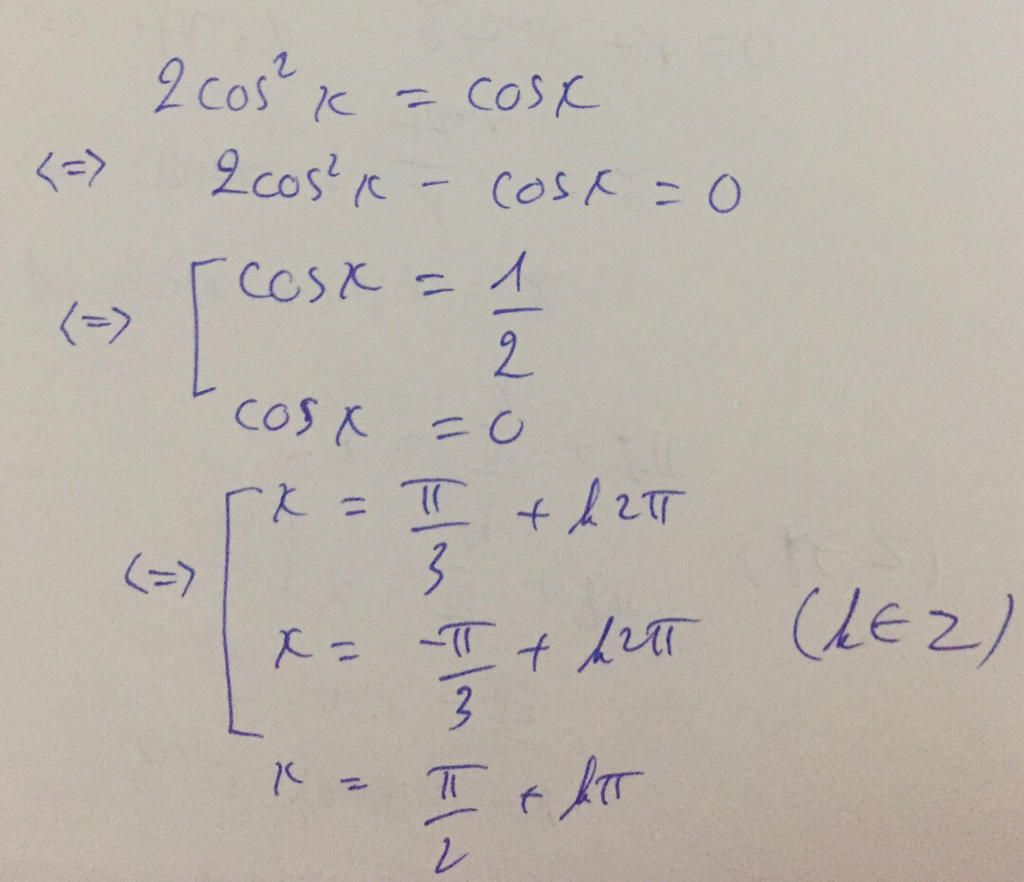 2cos² x = cosx
<=> 2cos² x - cosx = 0
<=> [ cosx = 1/2
cosx = 0
<=> [ x = π/3 + k2π
x = -π/3 + k2π (k∈Z)
x = π/2 + kπ